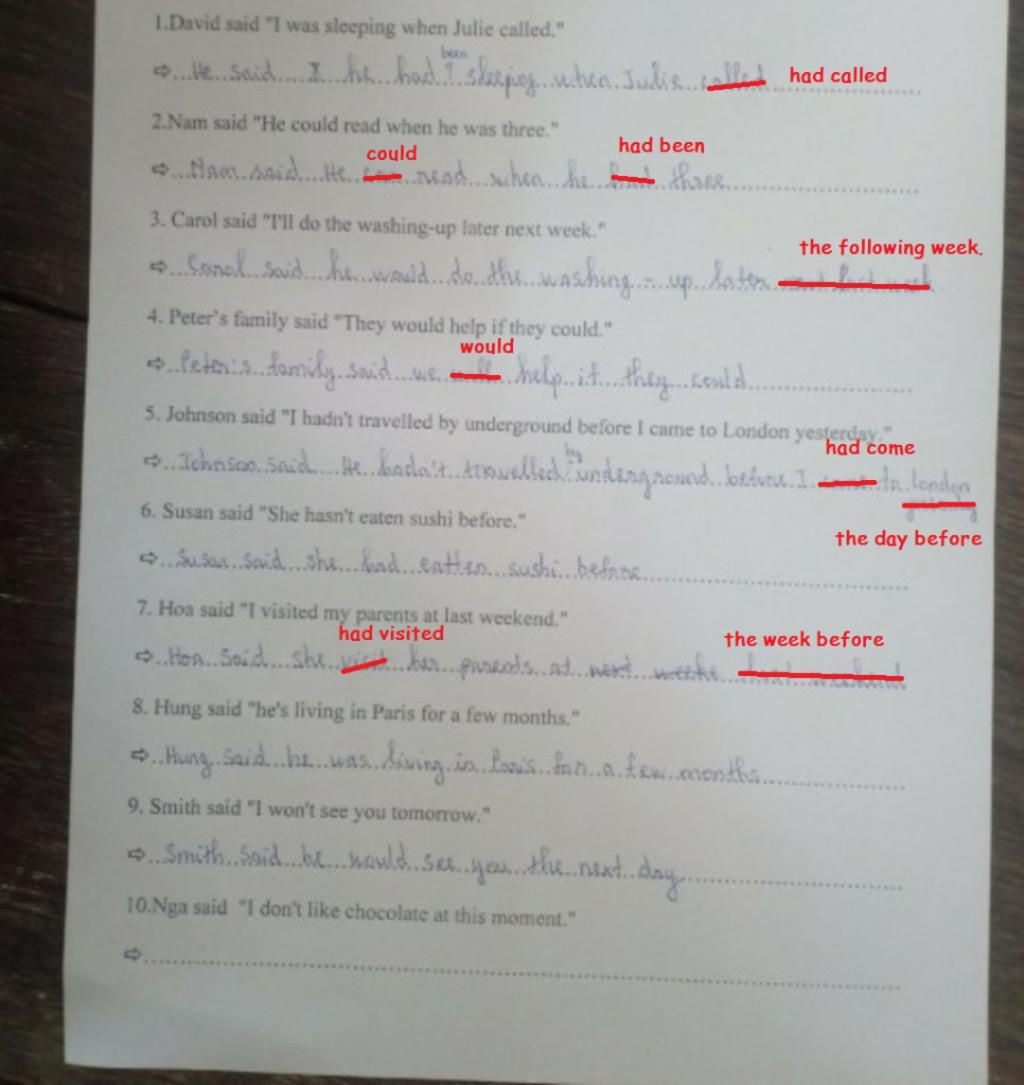 1.David said "I was sleeping when Julie called."
been
⇨...He said I he had ↑ sleeping when Julie called had called
2.Nam said "He could read when he was three."
could had been
⇨...Nam said He can read when he had three
3. Carol said "I'll do the washing-up later next week."
the following week.
⇨...Carol said he would do the washing - up later
4. Peter's family said "They would help if they could."
would
⇨...Peter's family said we will help if they could
5. Johnson said "I hadn't travelled by underground before I came to London yesterday."
by had come
⇨...Johnson said He hadn't travelled underground before I came to london
6. Susan said "She hasn't eaten sushi before."
the day before
⇨...Susan said she had eatten sushi before
7. Hoa said "I visited my parents at last weekend."
had visited the week before
⇨...Hoa said she visit her parents at next weeke last weekend
8. Hung said "he's living in Paris for a few months."
⇨...Hung said he was living in Paris for a few months
9. Smith said "I won't see you tomorrow."
⇨...Smith said he would see you the next day
10.Nga said "I don't like chocolate at this moment."
⇨